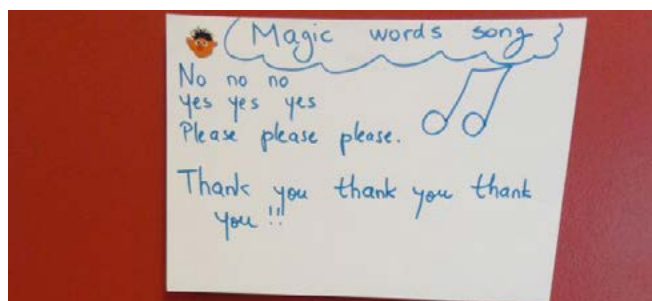 Magic words song
No no no
yes yes yes
Please please please.
Thank you thank you thank
you !!